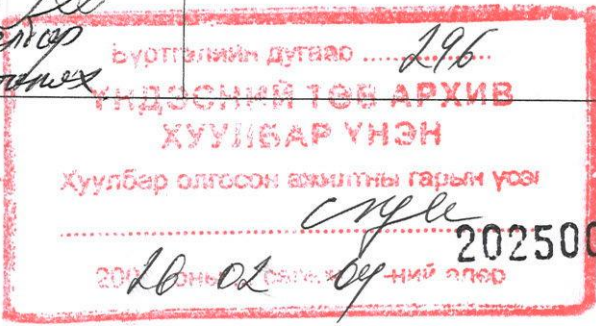 Бүртгэлийн дугаар ........ 296
ҮНДЭСНИЙ ТӨВ АРХИВ
ХУУЛБАР ҮНЭН
Хуулбар олгосон ажилтны гарын үсэг
202500
200 26 оны 02 сарын 04 -ний өдөр